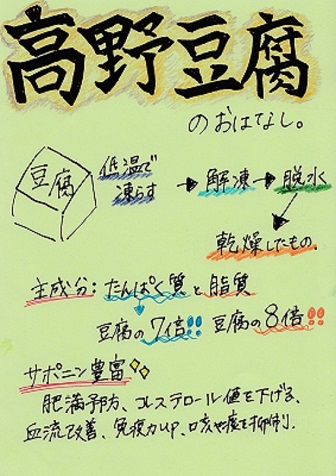 高野豆腐
のおはなし。
豆腐 低温で
凍らす → 解凍 → 脱水
乾燥したもの。
主成分:たんぱく質と脂質
豆腐の7倍!! 豆腐の8倍!!
サポニン豊富
肥満予防、コレステロール値を下げる、
血流改善、免疫力up、口亥や痰を抑制。